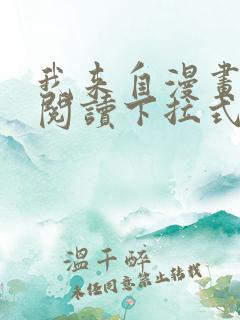 我来自漫畫
閱讀下拉式
溫千醉
未经同意禁止转载